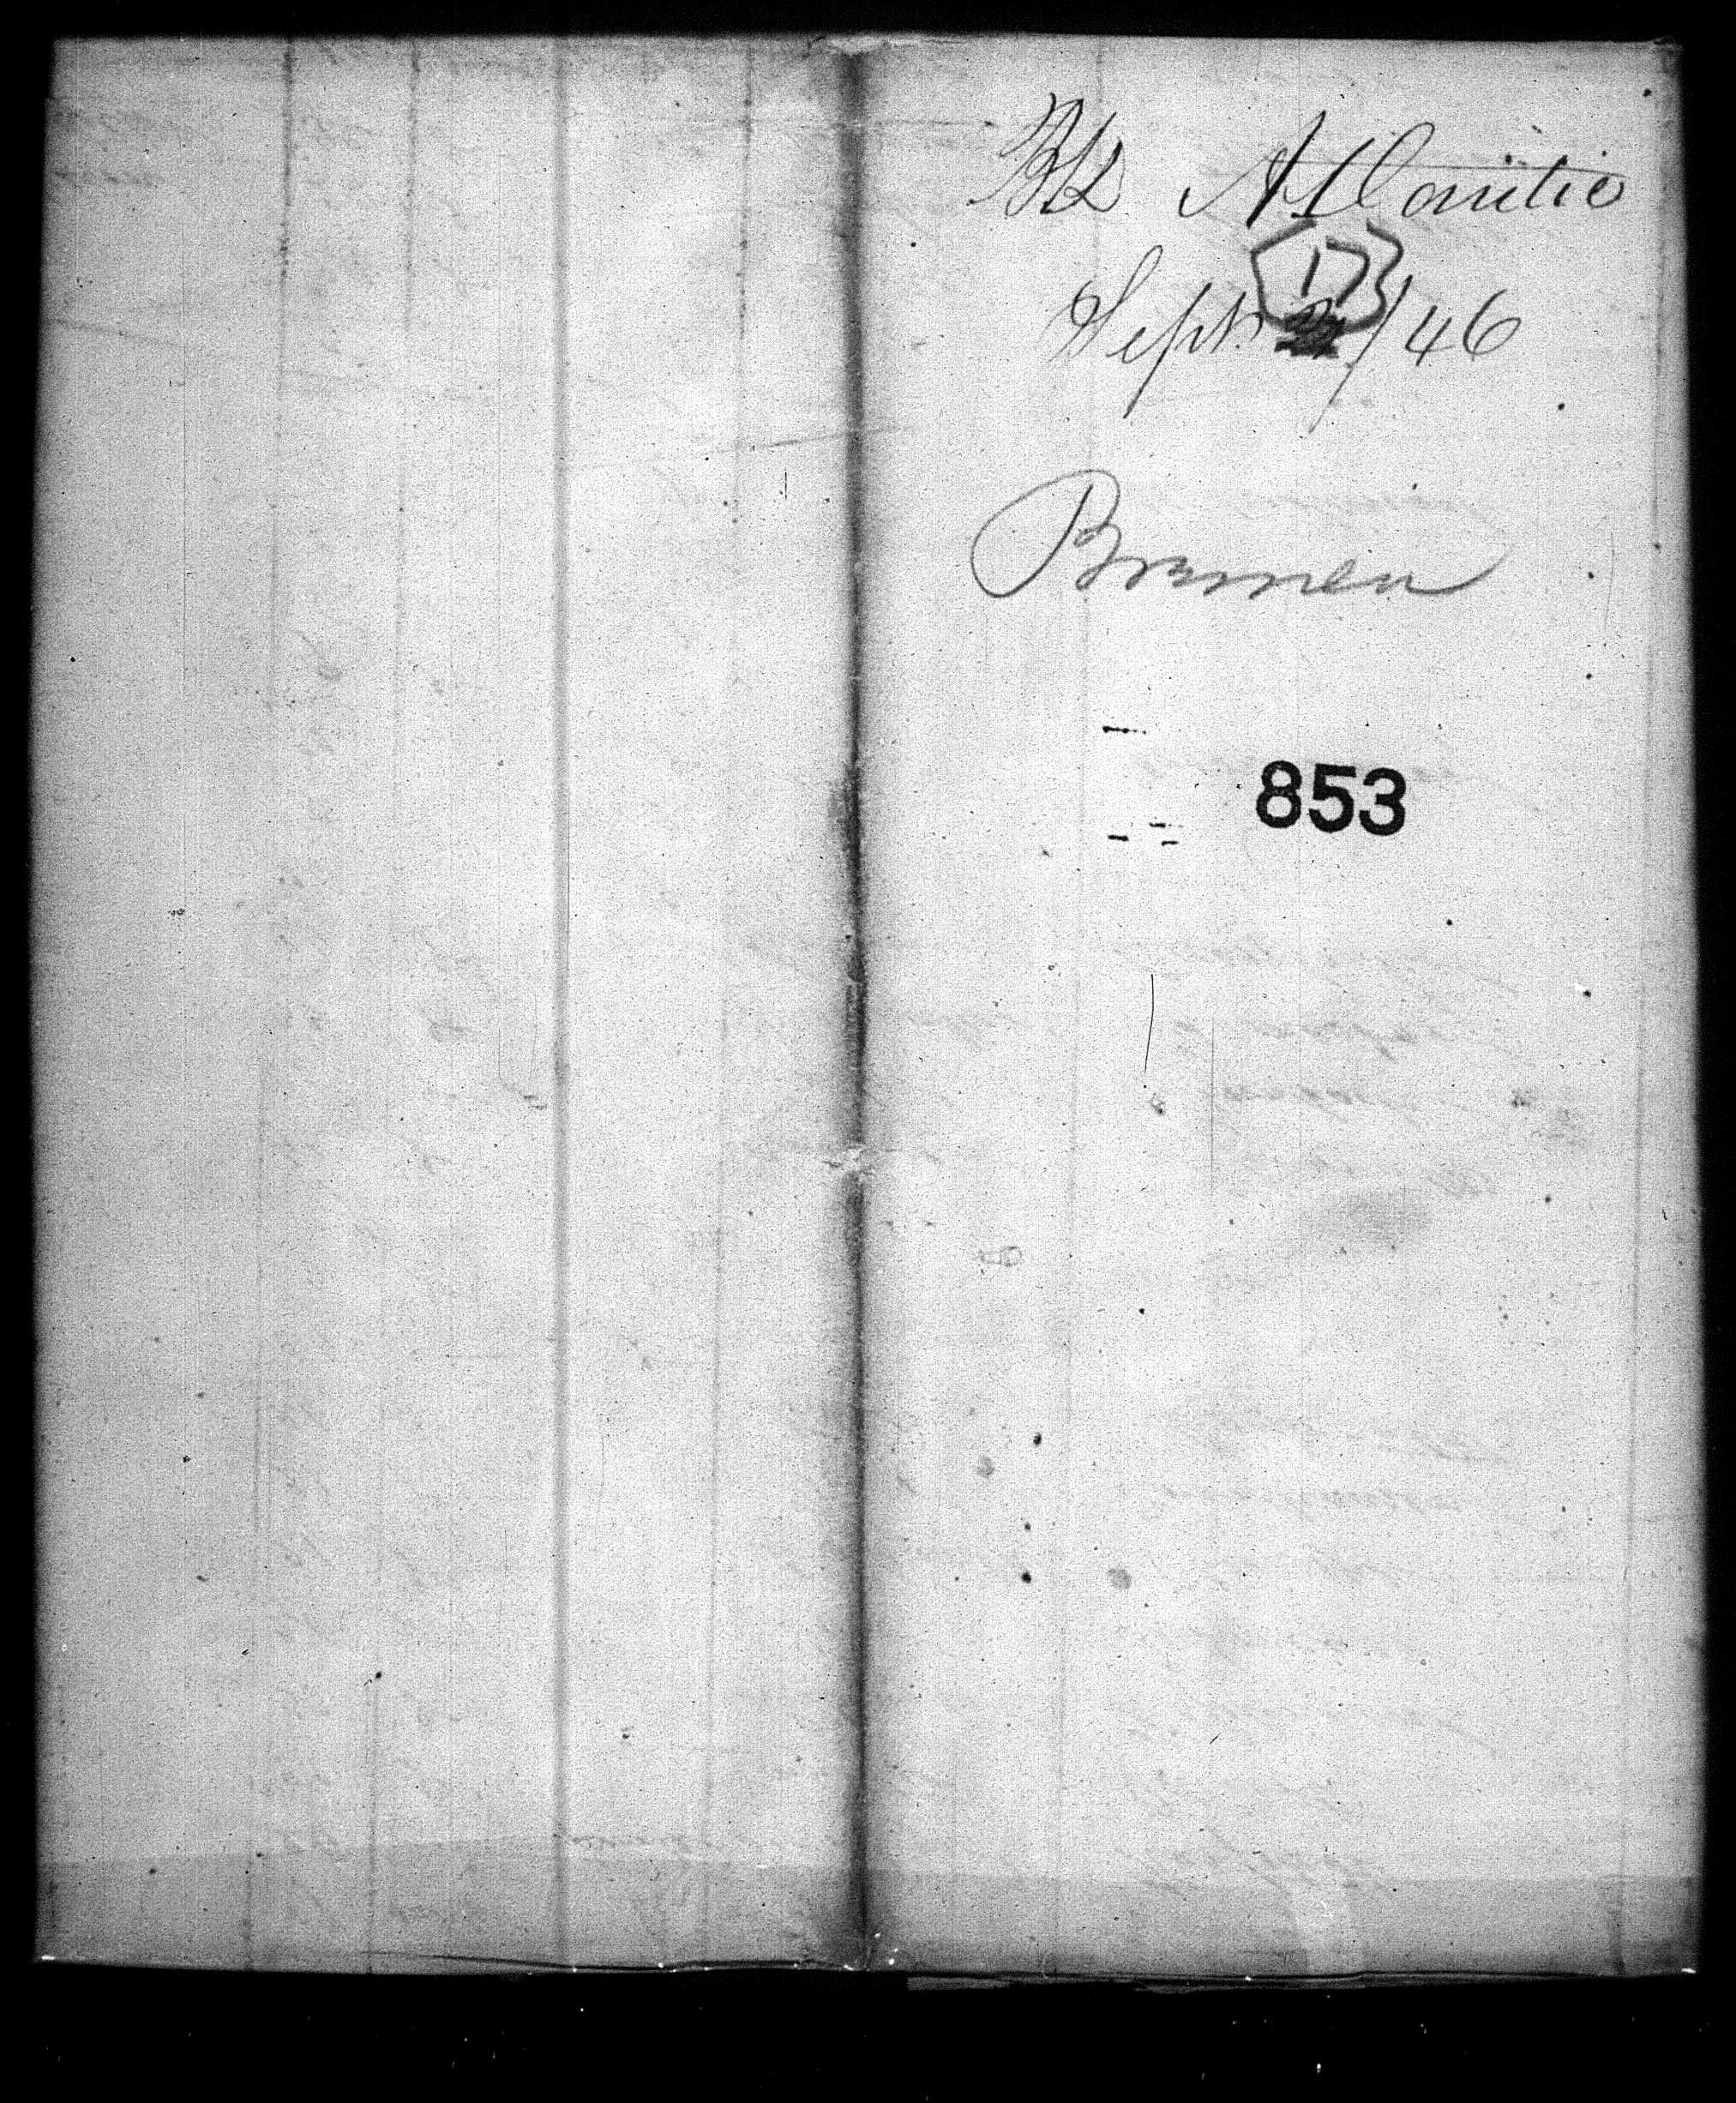 Bk Atlantic
17
Sept. /46
Bremen
853